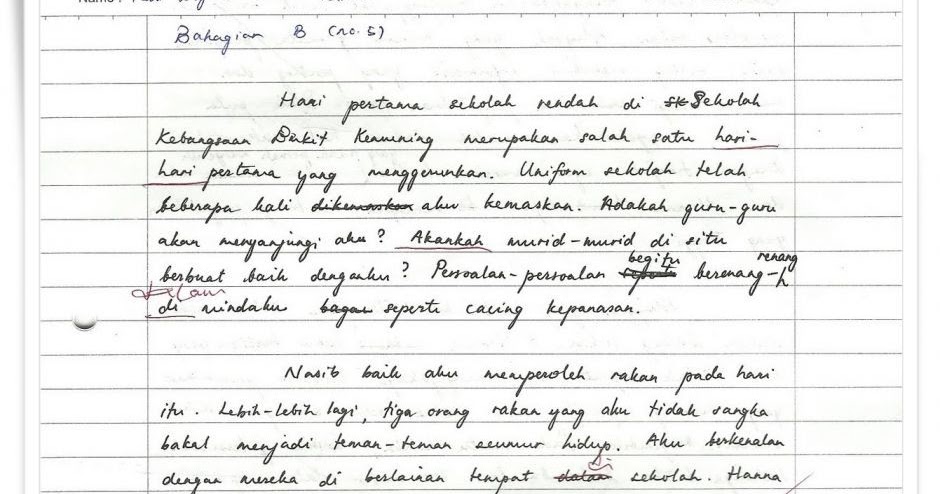 Bahagian B (no. 5)
Hari pertama sekolah rendah di SK Sekolah
Kebangsaan Bukit Kemuning merupakan salah satu hari-
hari pertama yang menggerunkan. Uniform sekolah telah
beberapa kali dikemaskan aku kemaskan. Adakah guru-guru
akan menyanjungi aku? Akankah murid-murid di situ
begitu renang
berbuat baik denganku? Persoalan-persoalan seperti berenang-
dalam
di mindaku bagai seperti cacing kepanasan.
Nasib baik aku memperoleh rakan pada hari
itu. Lebih-lebih lagi, tiga orang rakan yang aku tidak sangka
bakal menjadi teman-teman seumur hidup. Aku berkenalan
di
dengan mereka di berlainan tempat dalam sekolah. Hanna